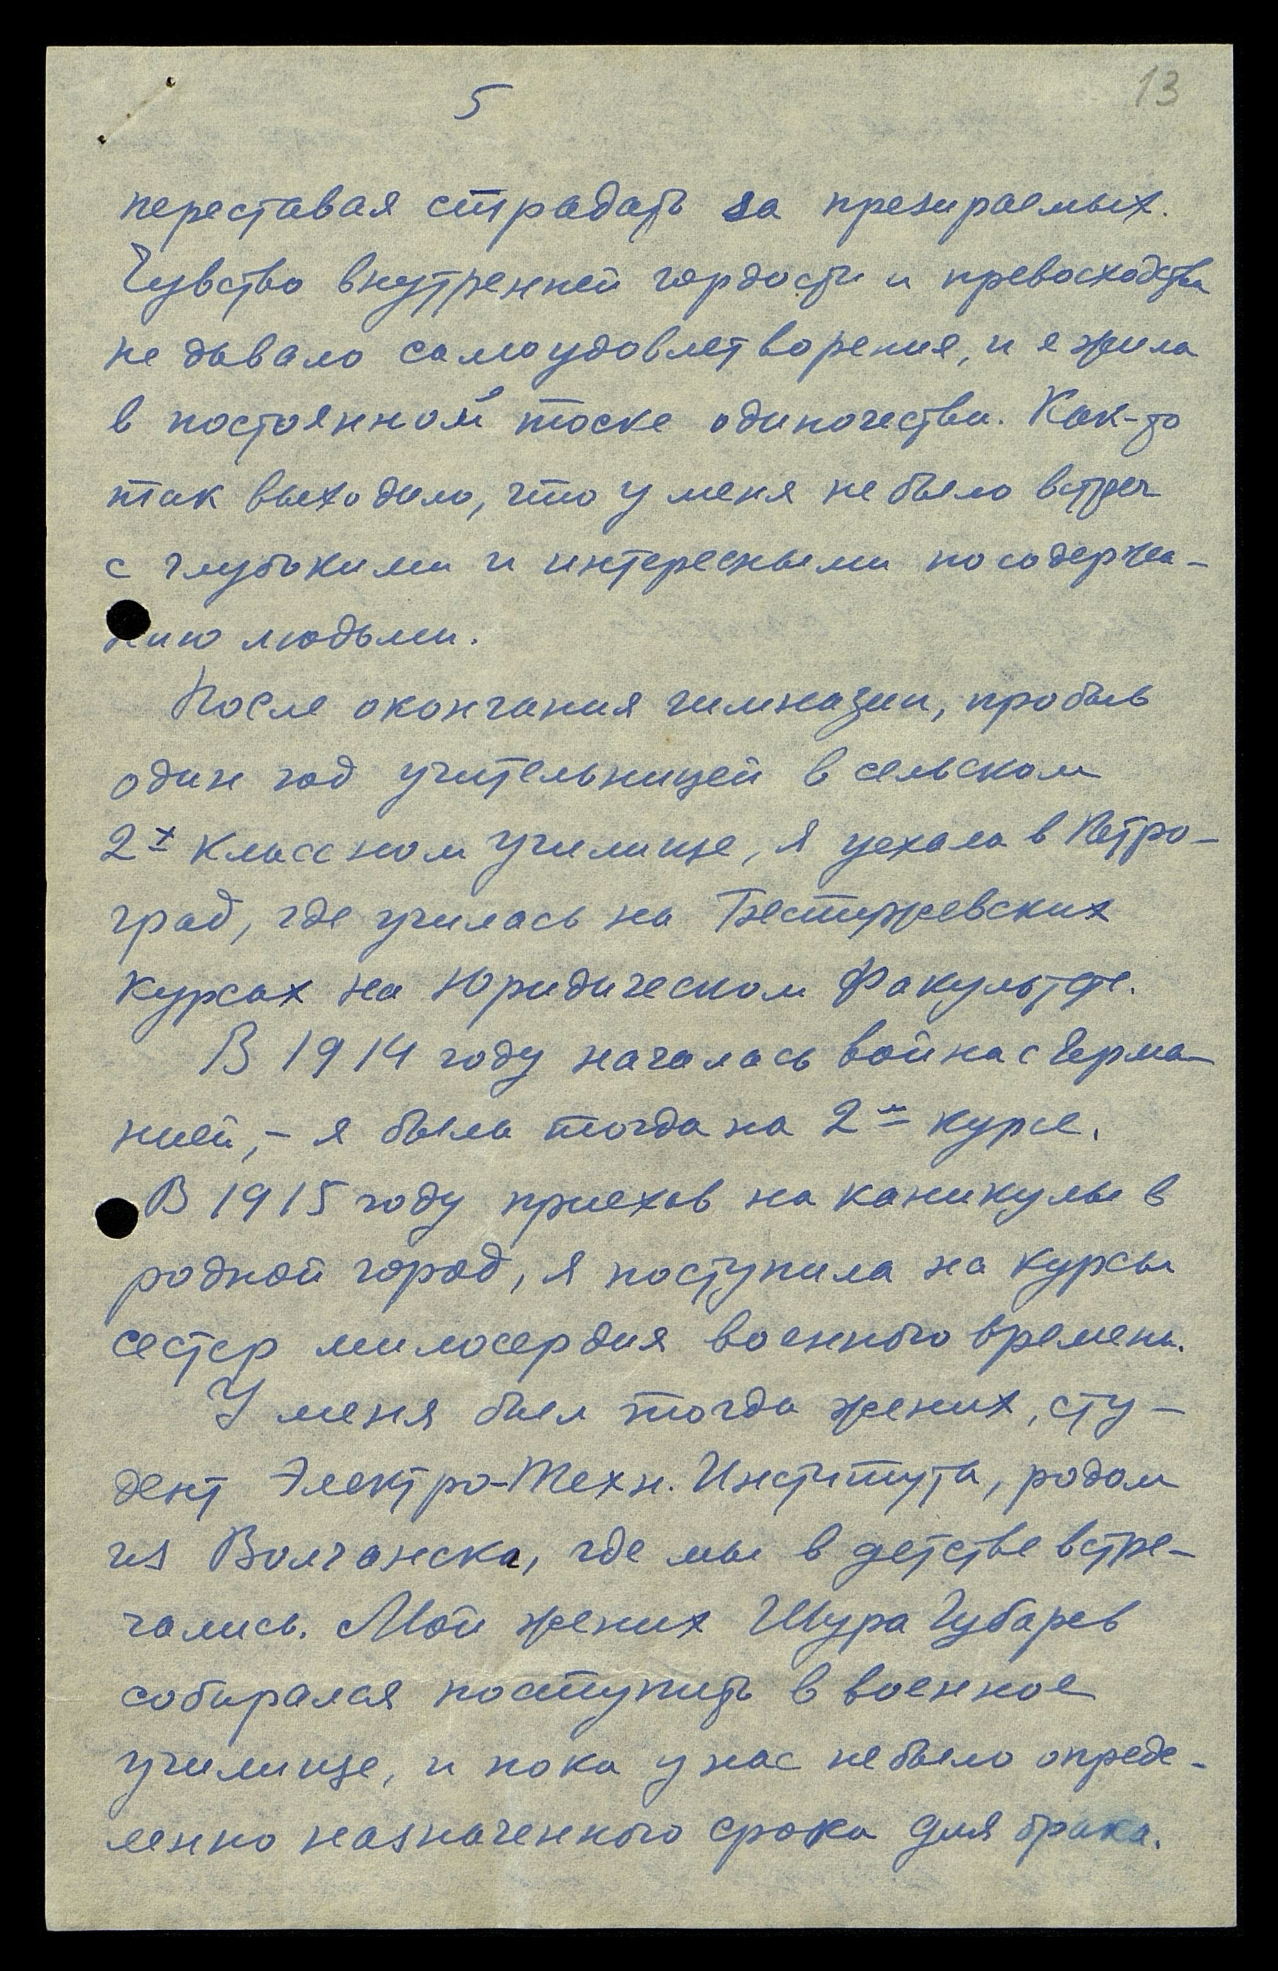 5
13
переставая страдать за презираемых.
Чувство внутренней гордости и превосходства
не давало самоудовлетворения, и я жила
в постоянной тоске одиночества. Как-то
так выходило, что у меня не было встреч
с глубокими и интересными по содержа-
нию людьми.
После окончания гимназии, пробыв
один год учительницей в сельском
2х классном училище, я уехала в Петро-
град, где училась на Бестужевских
курсах на Юридическом Факультете.
В 1914 году началась война с Герма-
нией, - я была тогда на 2м курсе.
В 1915 году приехав на каникулы в
родной город, я поступила на курсы
сестер милосердия военного времени.
У меня был тогда жених, сту-
дент Электро-Техн. Института, родом
из Волчанска, где мы в детстве встре-
чались. Мой жених Шура Губарев
собирался поступить в военное
училище, и пока у нас не было опреде-
ленно назначенного срока для брака.